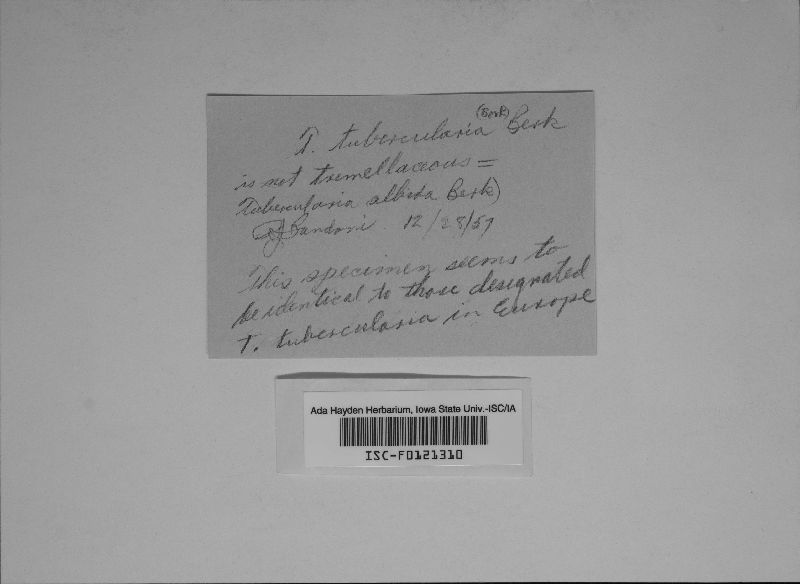 T. tubercularia (Berk) Berk
is not tremellaceous =
Tubercularia albida Berk)
RJ Bandoni 12/28/57
This specimen seems to
be identical to those designated
T. tubercularia in Europe
Ada Hayden Herbarium, Iowa State Univ.-ISC/IA
ISC-F0121310